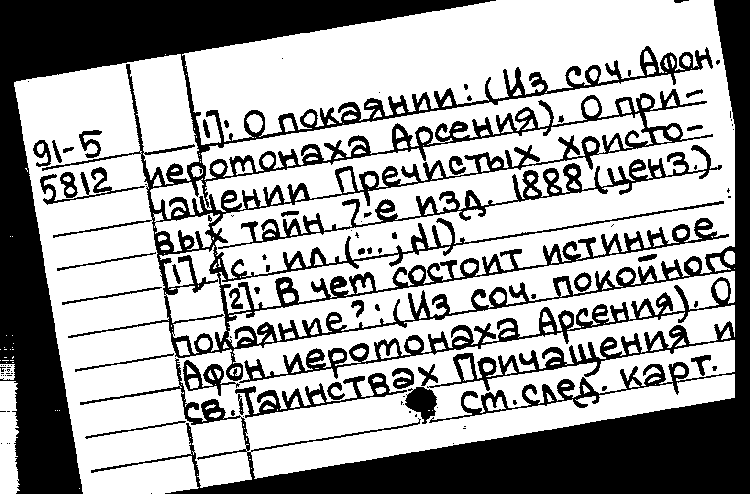 [1]: О покаянии: (Из соч. Афон.
91-5 иеротонаха Арсения). О при-
5812 чащении Пречистых христо-
вых тайн. 7-е изд. 1888 (ценз.).
[1], 4с.: ил. (...; №1).
[2]: В чет состоит истинное
покаяние?: (Из соч. покойного
Афон. иеротонаха Арсения). О
св. Таинствах Причащения и
ст. след. карт.